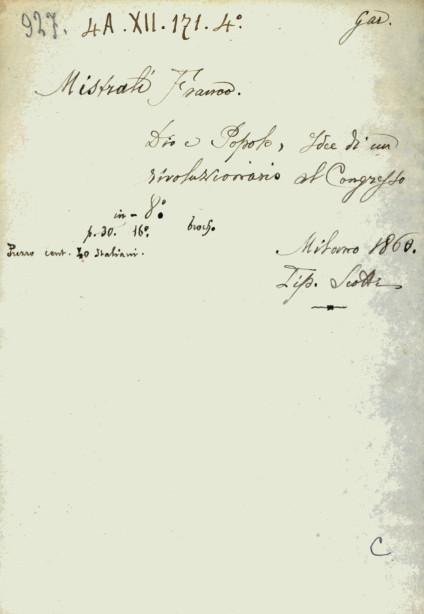 927. 4A.XII.171.4°
Gar.
Mistrali Franco.
Dio e Popolo, Idee di un
rivoluzionario al Congresso
in-8°
p. 30. 16°. broch.
Prezzo cent. 40 Italiani.
Milano 1860.
Tip. Scotti
C